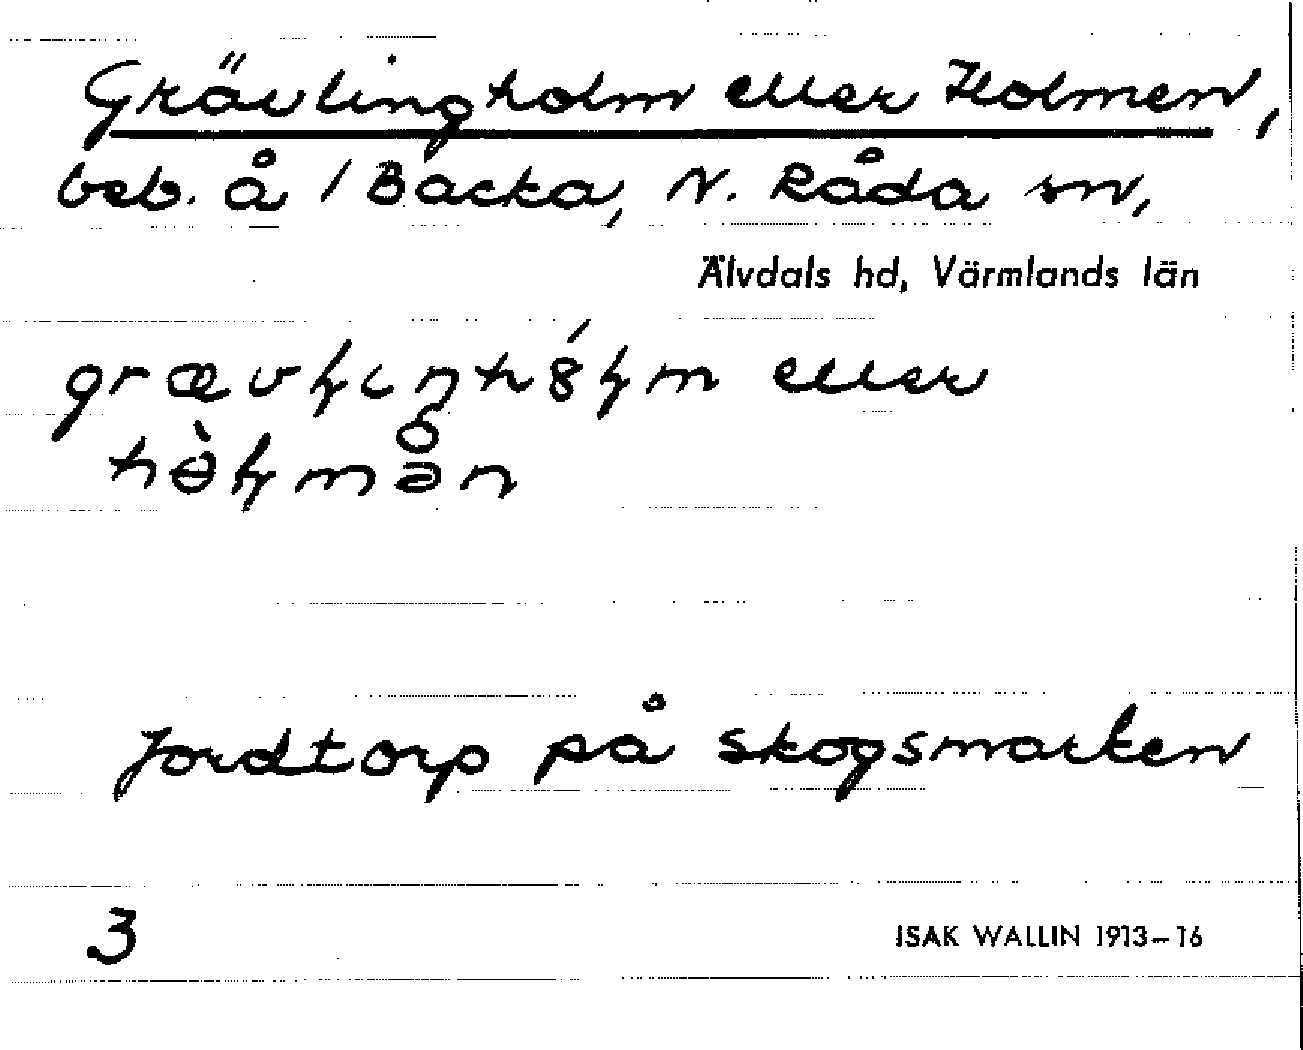 Grävlingholm eller Holmen,
beb. å 1 Backa, N. Råda sn,
Älvdals hd, Värmlands län
eller
Jordtorp på skogsmarken
3
ISAK WALLIN 1913–16